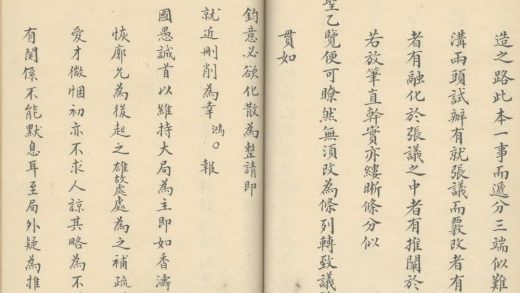 造之路此本一事而遞分三端似難
溝兩頭試辦有就張議而覈改者有
者有融化於張議之中者有推闡於
若放筆直幹實亦縷晰條分似
聖乙覽便可瞭然無須改為條列轉致議
貫如
鈞意必欲化散為整請即
就近刪削為幸 鴻 報
國愚誠首以維持大局為主即如香濤
恢廓兄為後起之雄故處處為之補疏
愛才微悃初亦不求人諒其略為不
有關係不能默息耳至局外疑為推